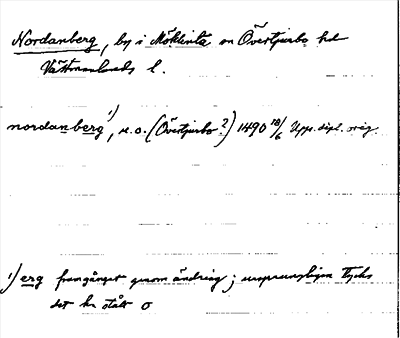 Nordanberg, by i Möklinta sn Övertjurbo hd
Västmanlands l.
nordanberg¹), u.o. (Övertjurbo?) 1490 18/6 Upps. dipl. orig.
¹) erg framgånget genom ändring; ursprungligen tycks
det ha stått o